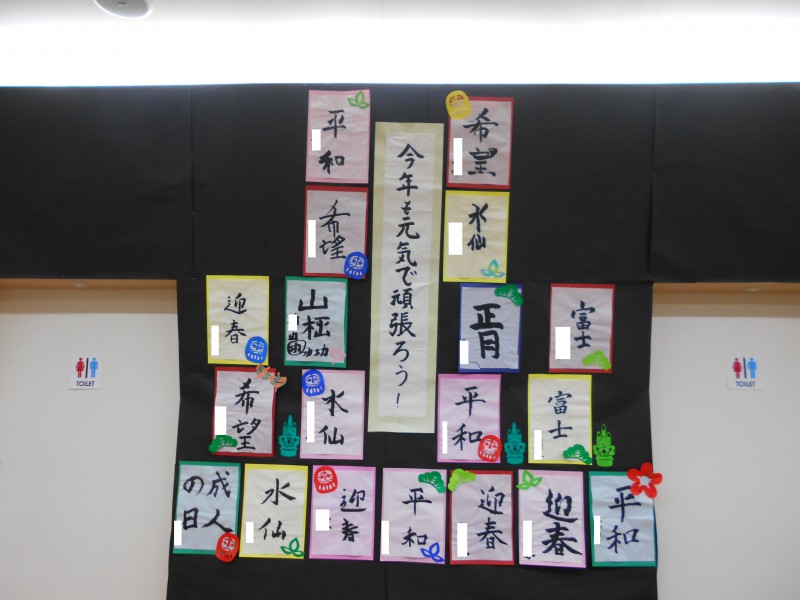 平和
希望
今年も元気で頑張ろう！
希望
水仙
迎春
正月
富士
希望
水仙
平和
富士
成人
の日
水仙
迎春
平和
迎春
迎春
平和
TOILET
TOILET